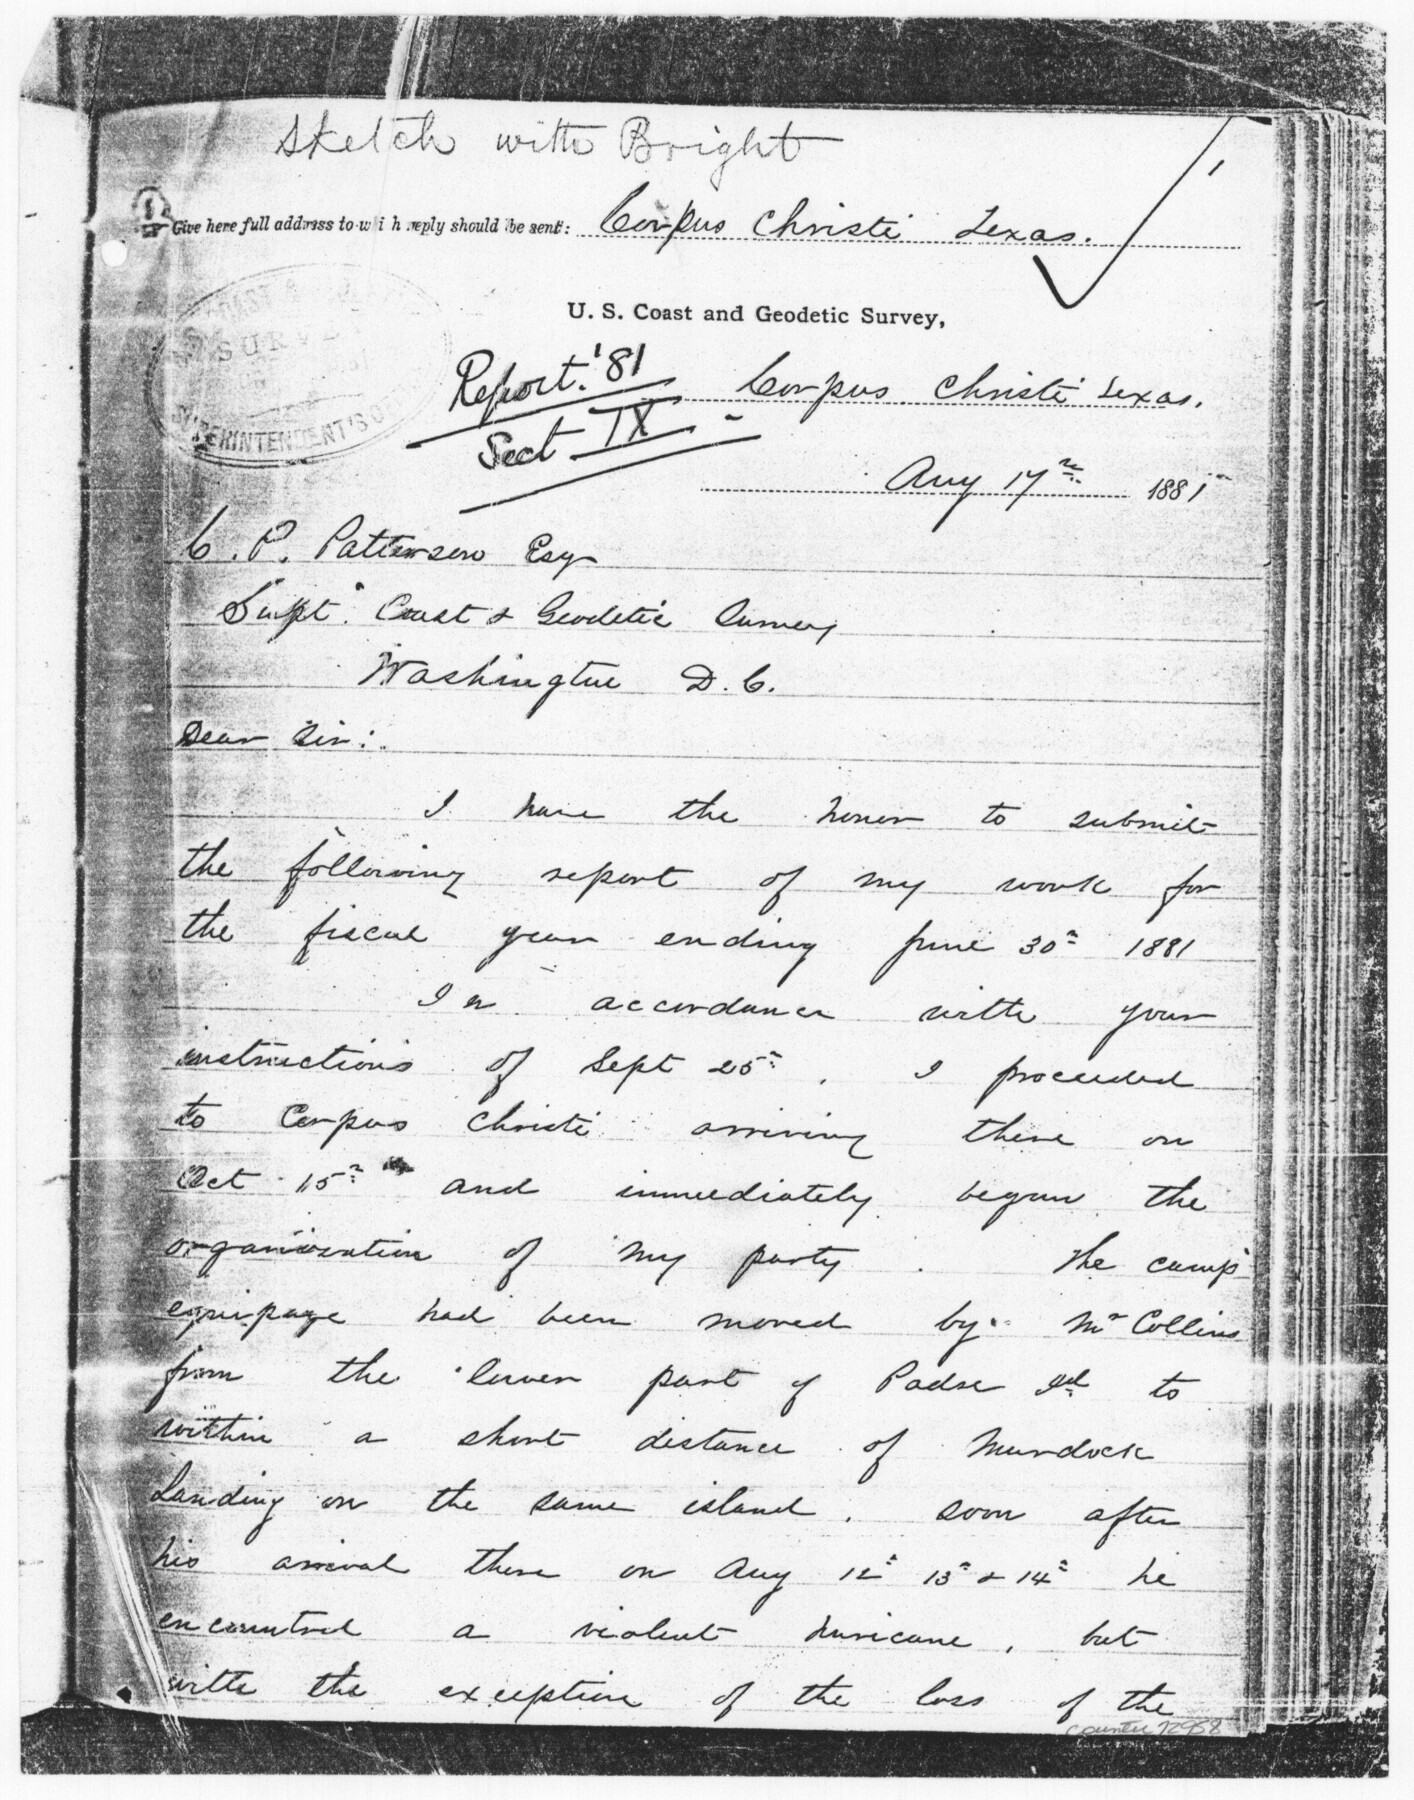 Sketch with Bright
1
Give here full address to which reply should be sent: Corpus Christi Texas.
U. S. Coast and Geodetic Survey,
SURVEY
SUPERINTENDENT'S
Report. '81
Sect IX
Corpus Christi Texas.
Aug 17th 1881
C. P. Patterson Esq
Supt. Coast & Geodetic Survey
Washington D. C.
Dear Sir:
I have the honor to submit
the following report of my work for
the fiscal year ending June 30th 1881
In accordance with your
instructions of Sept 25th, I proceeded
to Corpus Christi arriving there on
Oct 15th and immediately began the
organization of my party. The camp
equipage had been moved by Mr Collins
from the lower part of Padre Isd to
within a short distance of Murdock
Landing on the same island. Soon after
his arrival there on Aug 12th 13th & 14th he
encountred a violent huricane, but
with the exception of the loss of the
counter 72958